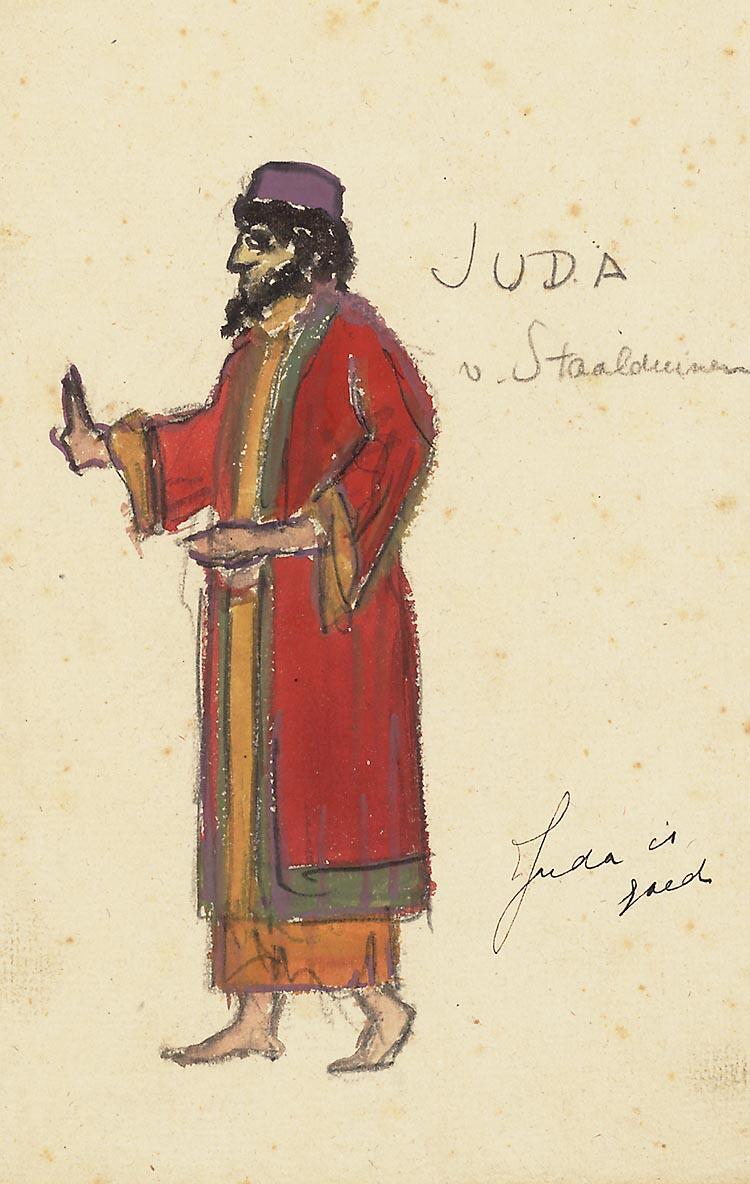 JUDA
v. Staalduinen
Juda is
goed